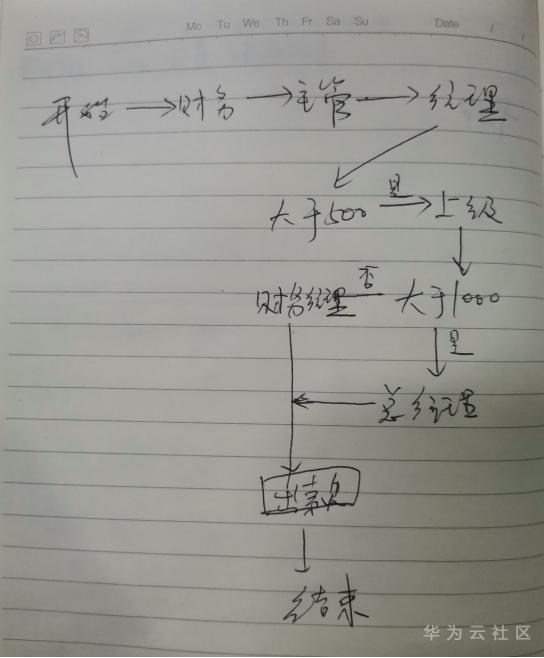 Mo Tu We Th Fr Sa Su Date / /
开始 财务 主管 经理
大于500 是 上级
财务经理 否 大于1000
是
总经理
出纳
结束
华为云社区